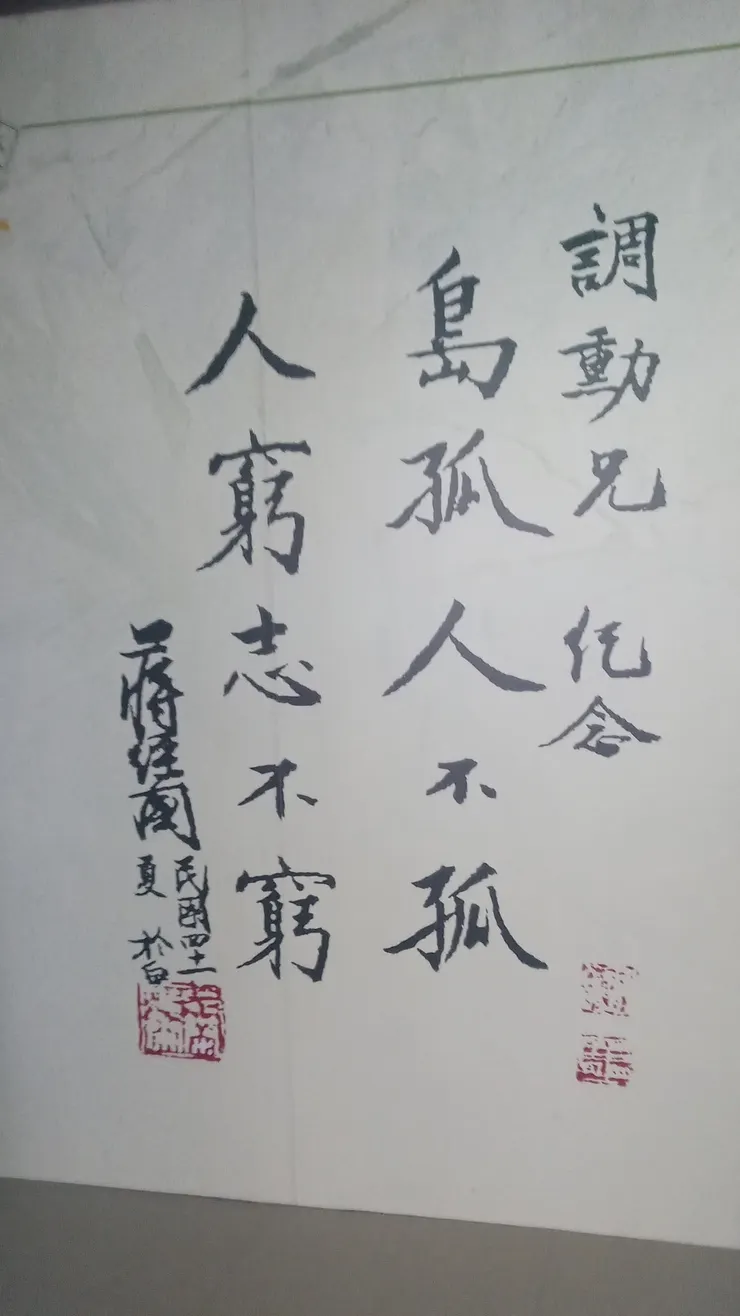 調動兄 紀念
島孤人不孤
人窮志不窮
蔣經國
民國四十一
夏 於白